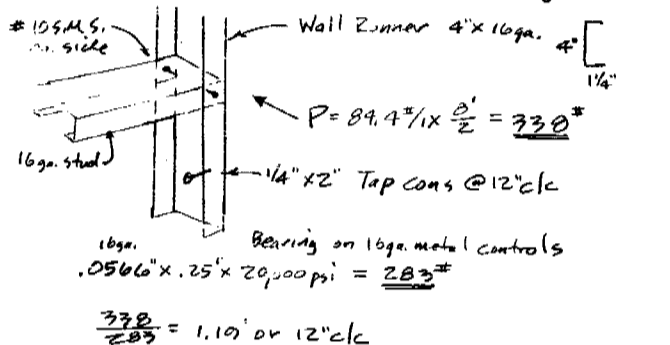 #10 S.M.S.
side
Wall Runner 4"x 16ga.
4"
1¼"
P = 84.4#/1 x 8'/2 = 338#
16ga. stud
1/4" x 2" Tap cons @ 12" c/c
16ga.
Bearing on 16ga. metal controls
.0566" x .25" x 20,000 psi = 283#
338/283 = 1.19' or 12" c/c